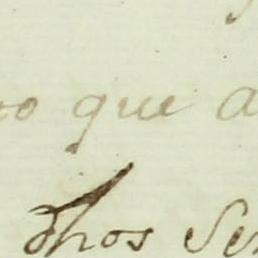 que a
dhos Se